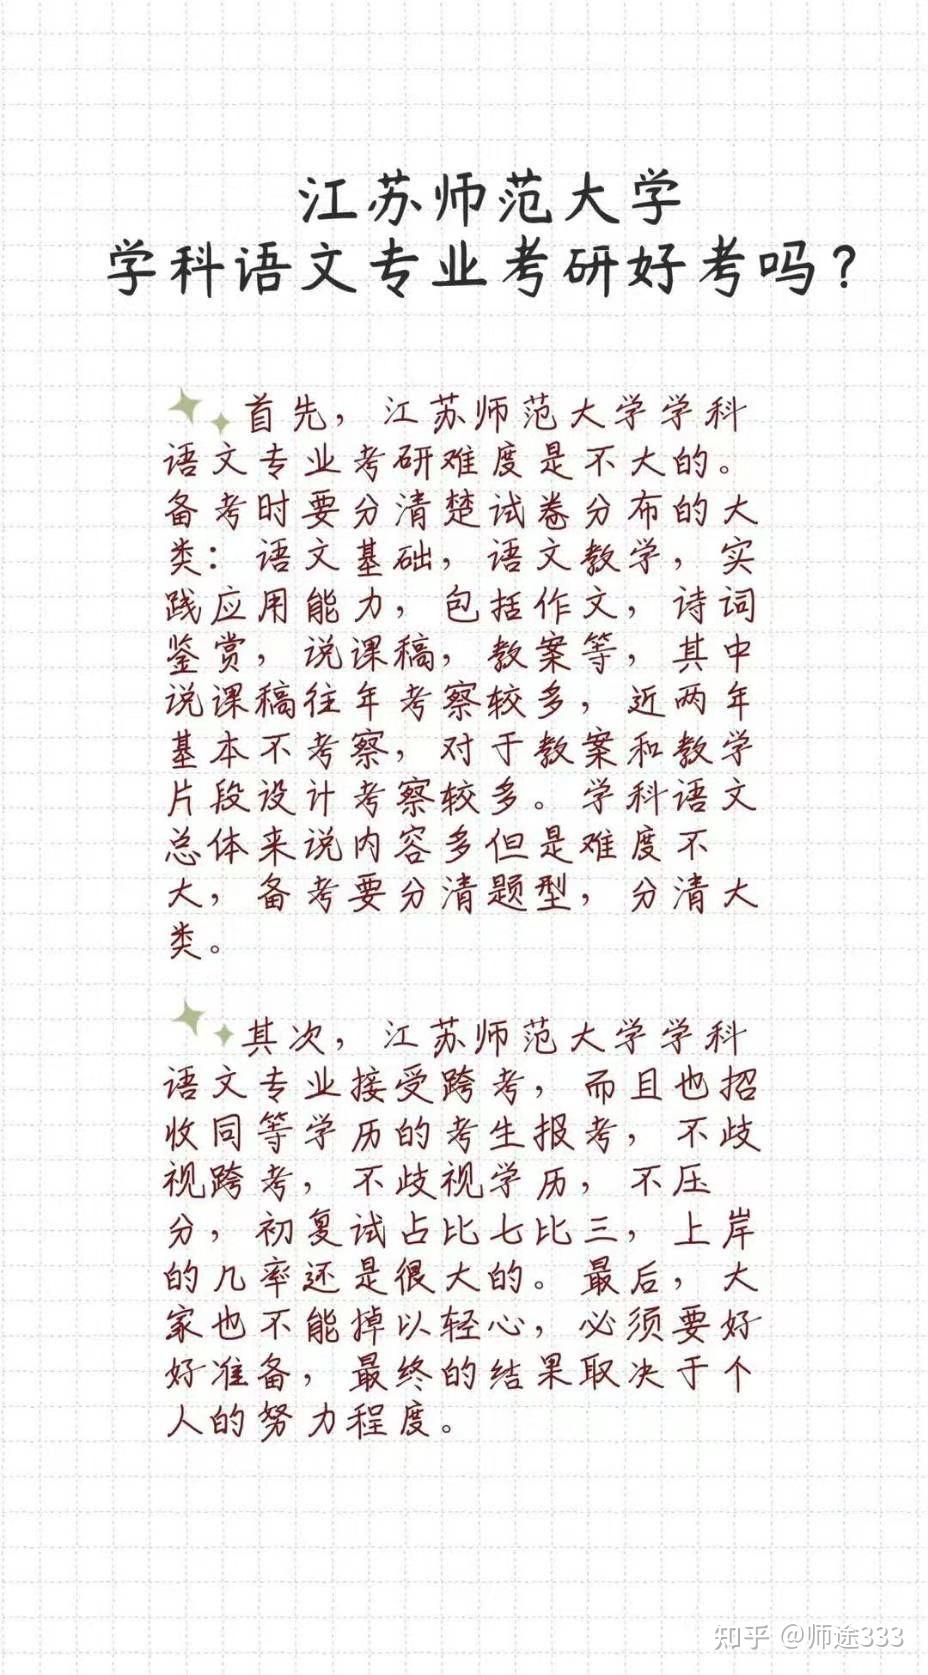 江苏师范大学
学科语文专业考研好考吗？
首先，江苏师范大学学科
语文专业考研难度是不大的。
备考时要分清楚试卷分布的大
类：语文基础，语文教学，实
践应用能力，包括作文，诗词
鉴赏，说课稿，教案等，其中
说课稿往年考察较多，近两年
基本不考察，对于教案和教学
片段设计考察较多。学科语文
总体来说内容多但是难度不
大，备考要分清题型，分清大
类。
其次，江苏师范大学学科
语文专业接受跨考，而且也招
收同等学历的考生报考，不歧
视跨考，不歧视学历，不压
分，初复试占比七比三，上岸
的几率还是很大的。最后，大
家也不能掉以轻心，必须要好
好准备，最终的结果取决于个
人的努力程度。
知乎 @师途333